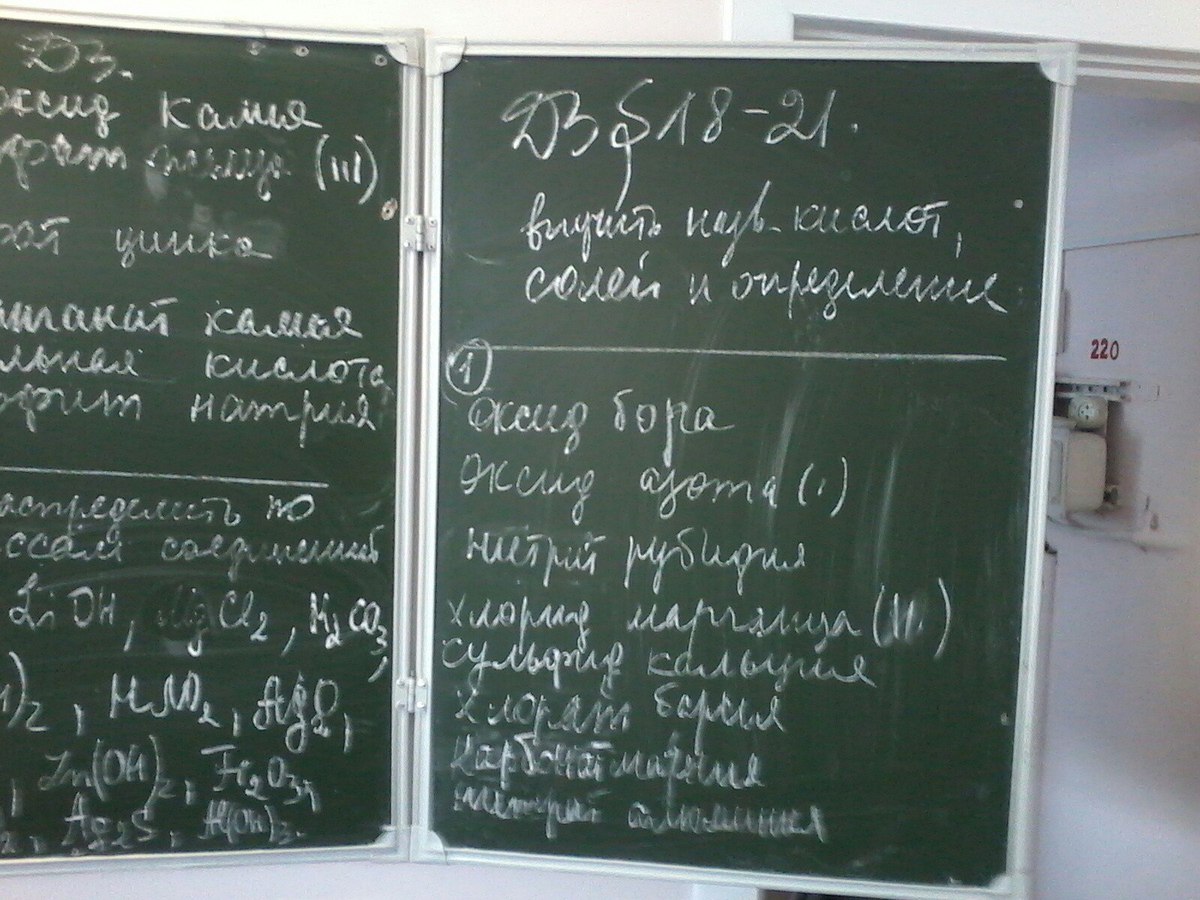 ДЗ.
оксид калия
(III)
рат цинка
манганат калия
льная кислота
сфит натрия
аспределить по
ссам соединений
LiOH, MgCl2, H2CO3,
)2, HNO2, AgCl,
Zn(OH)2, Fe2O3,
Ag2S, Al(OH)3.
ДЗ § 18-21.
выучить назв. кислот,
солей и определение
1
Оксид бора
Оксид азота (I)
нитрит рубидия
хлорид марганца (II)
сульфид кальция
хлорат бария
карбонат магния
нитрат алюминия
220